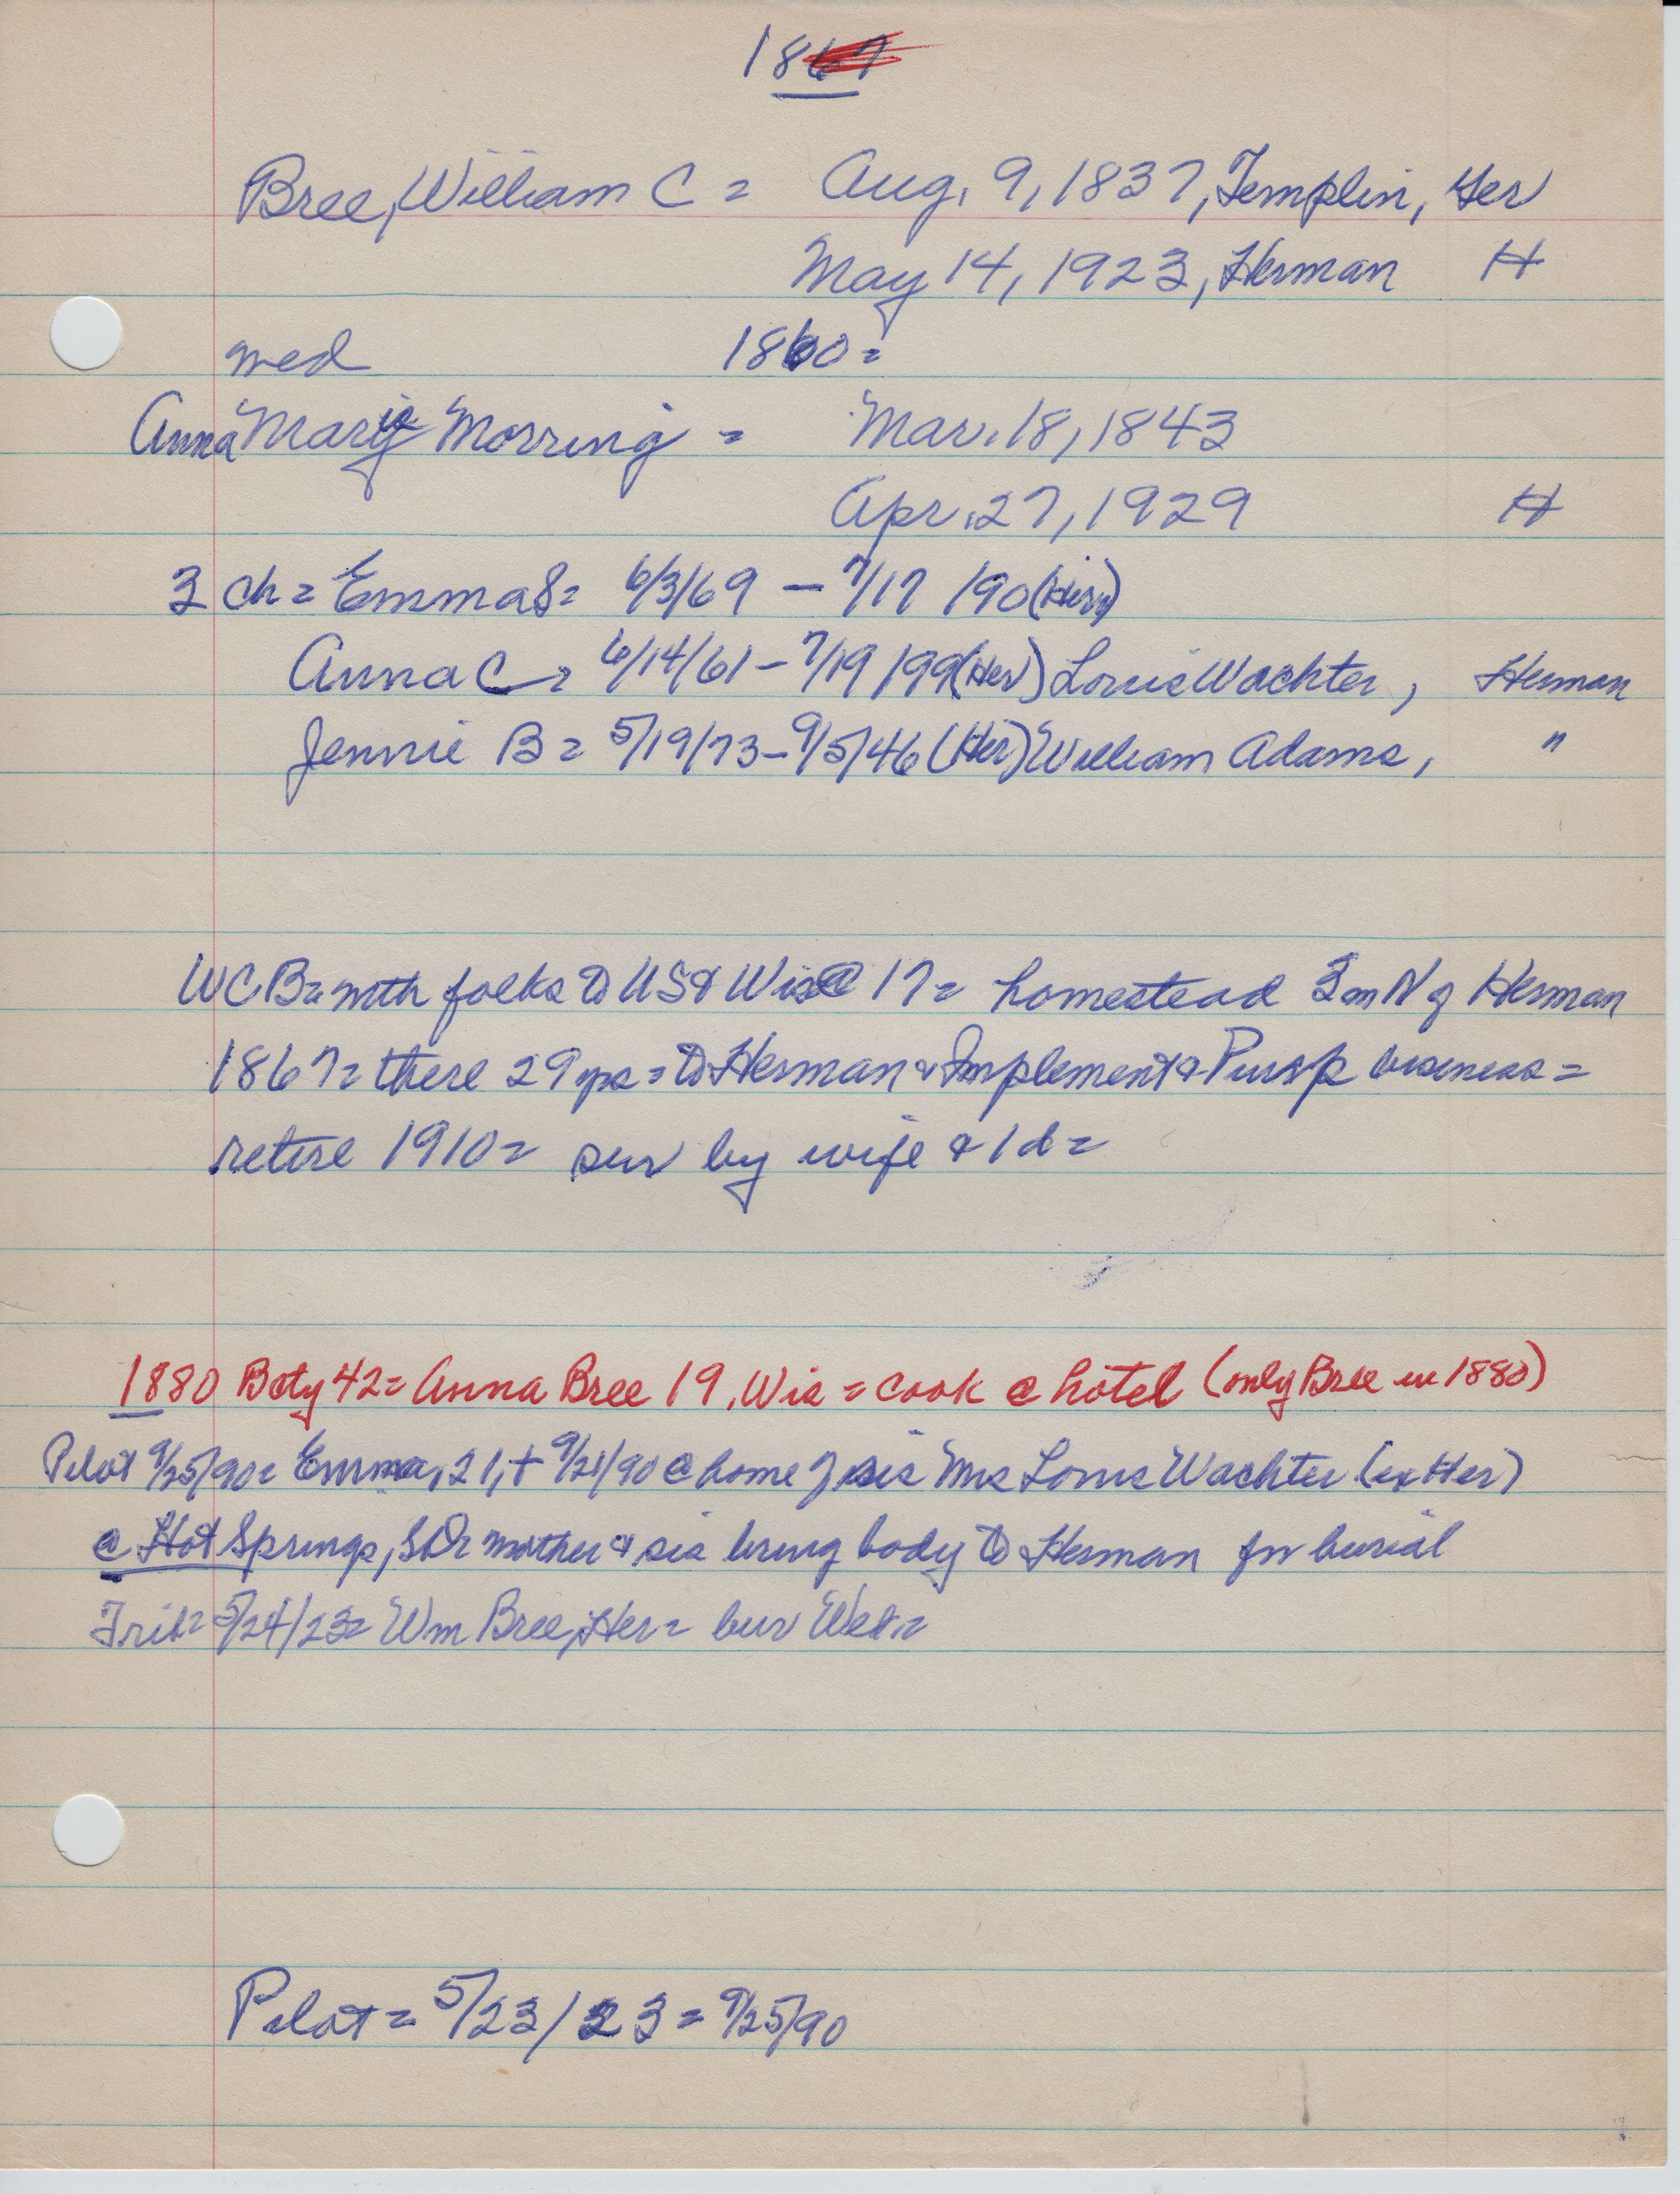 1867
Bree, William C = Aug. 9, 1837, Templin, Ger
May 14, 1923, Herman H
wed 1860 =
Anna Marie Morring = Mar. 18, 1843
Apr. 27, 1929 H
3 ch = Emma S = 6/3/69 – 7/17/90 (Her)
Anna C = 6/14/61 – 7/19/99 (Her) Louis Wachter, Herman
Jennie B = 5/19/73 – 9/5/46 (Her) William Adams, "
WCB = with folks to US & Wis @ 17 = homestead 3 m N of Herman
1867 = there 29 yrs = to Herman & Implement & Pump business =
retire 1910 = sur by wife & 1 d =
1880 Bcty 42 = Anna Bree 19, Wis = cook @ hotel (only Bree in 1880)
Pilot 9/25/90 = Emma, 21, + 9/21/90 @ home of sis Mrs Louis Wachter (ex Her)
@ Hot Springs, SD = mother & sis bring body to Herman for burial
Trib = 5/24/23 = Wm Bree, Her = bur Wed =
Pilot = 5/23/23 = 9/25/90